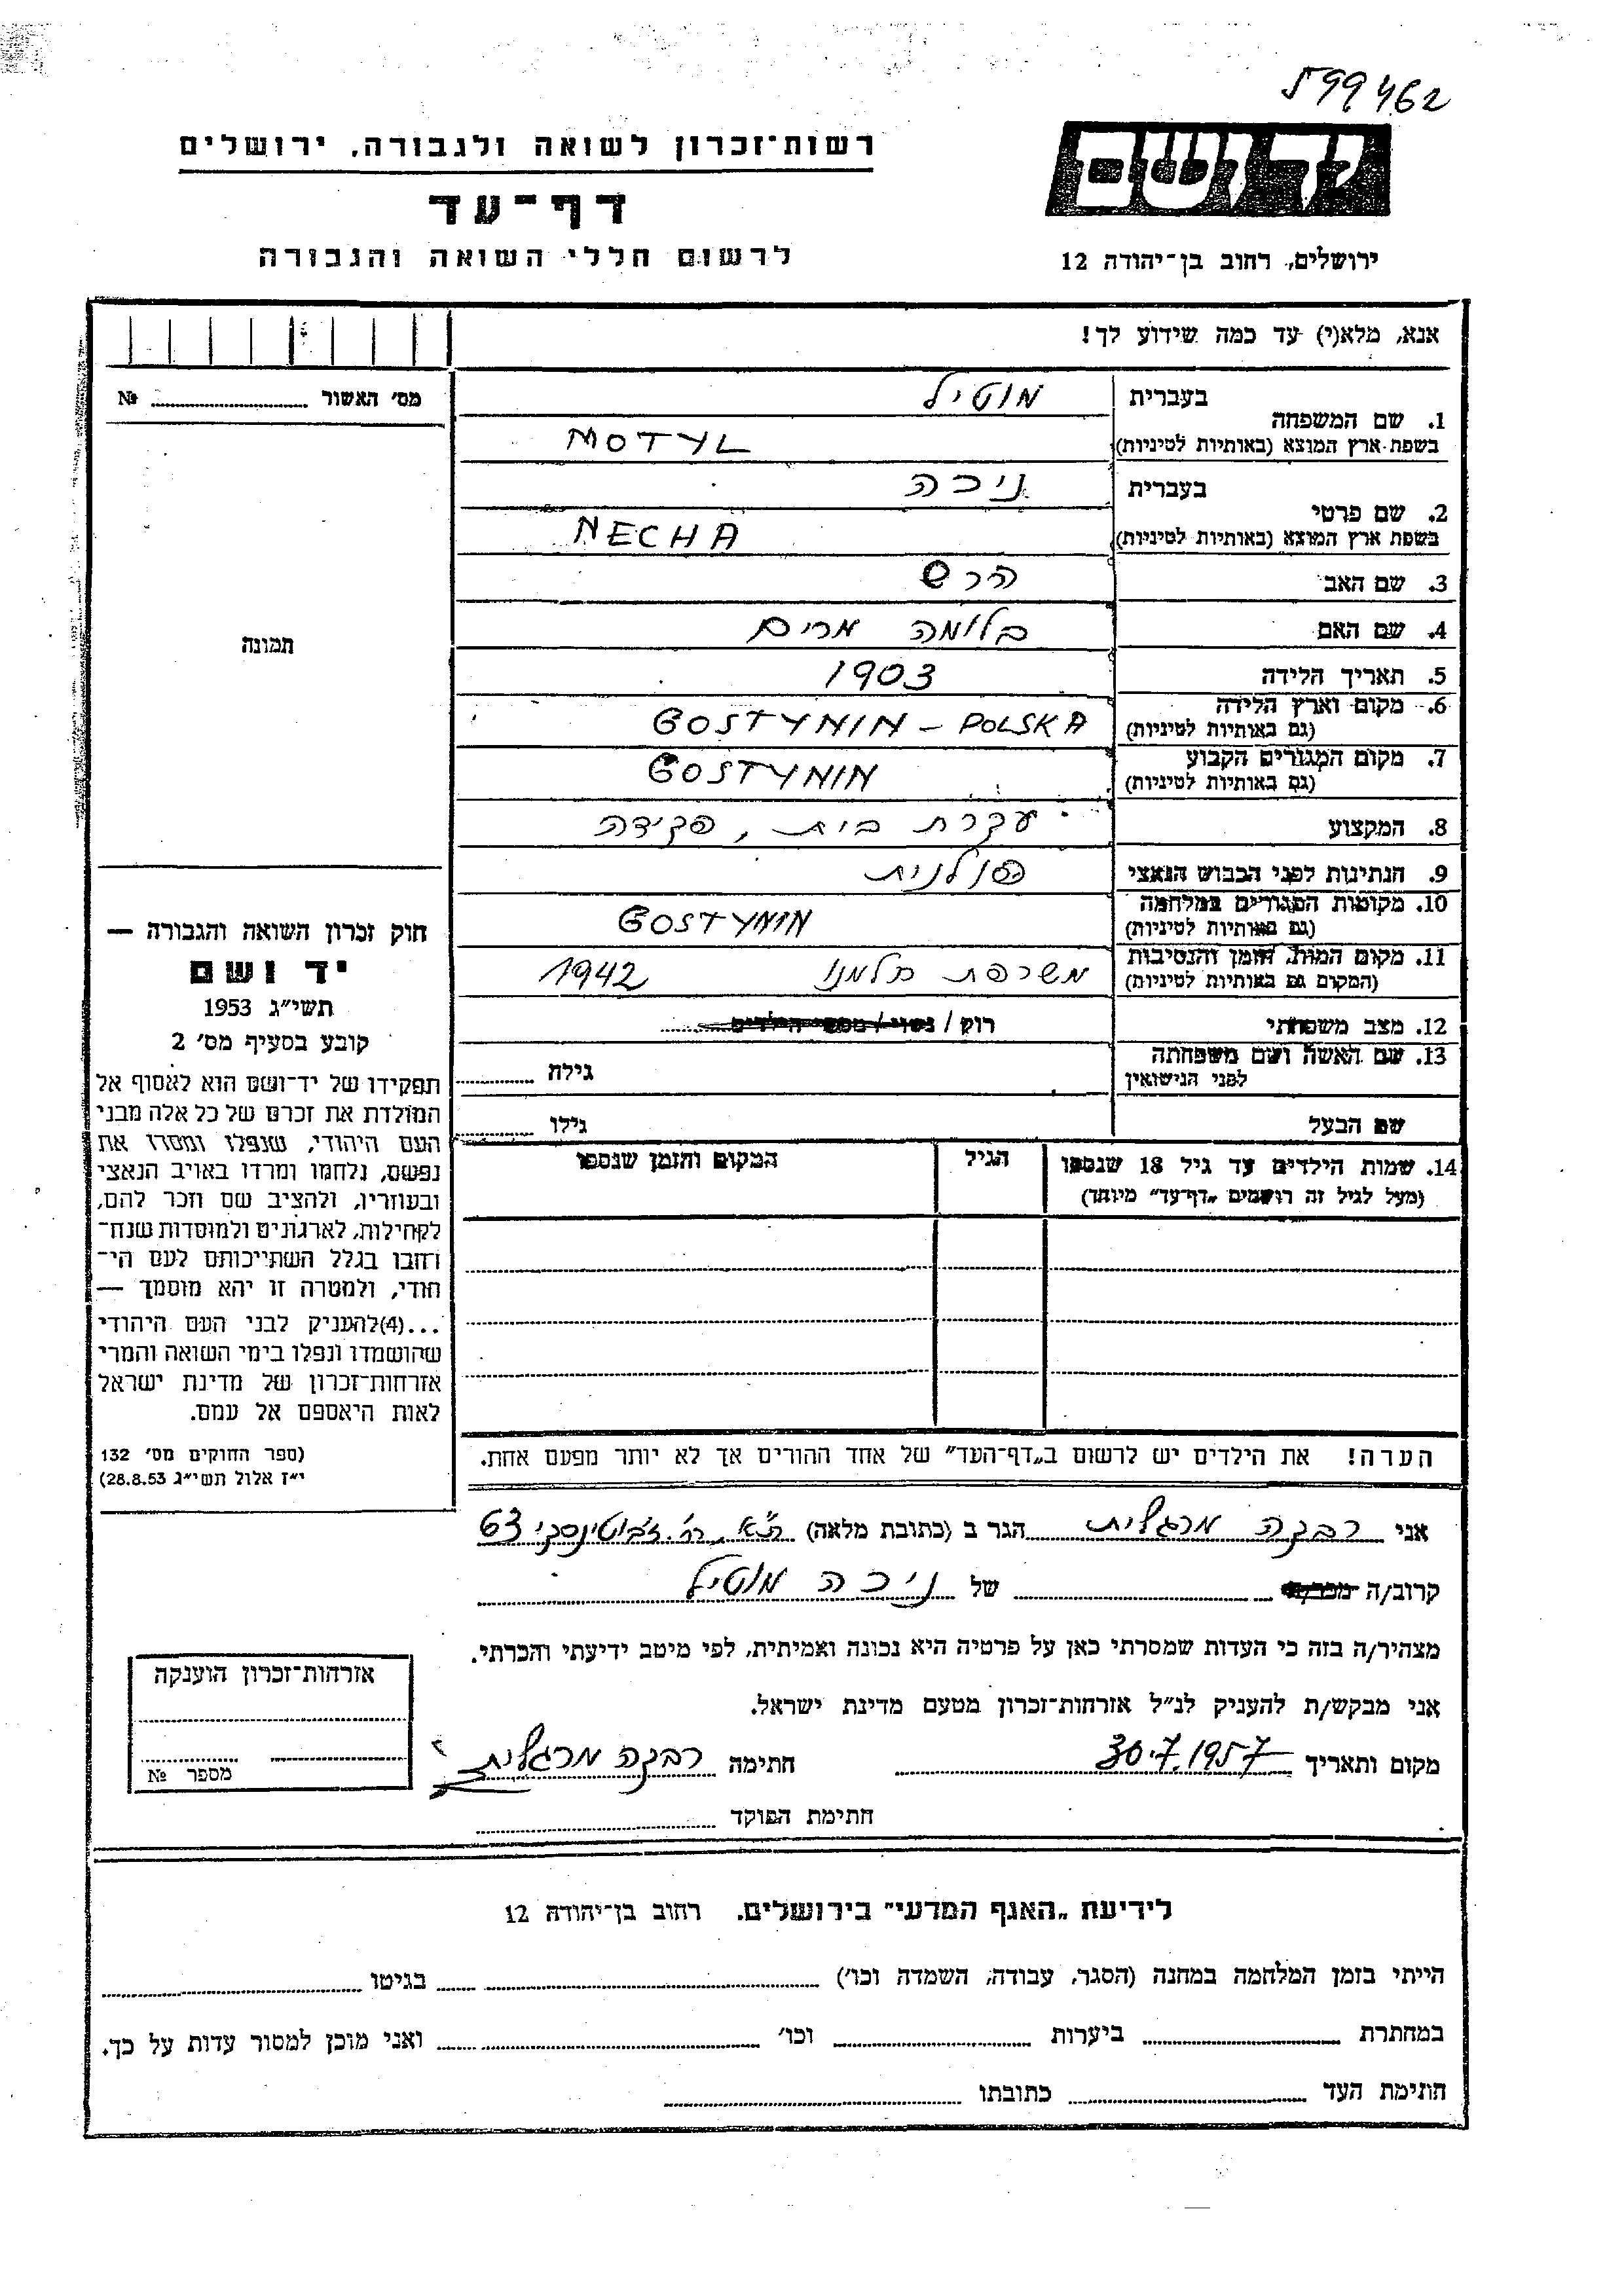 599462
יד ושם
רשות־זכרון לשואה ולגבורה, ירושלים
דף־עד
לרשום חללי השואה והגבורה
ירושלים, רחוב בן־יהודה 12
אנא, מלא(י) עד כמה שידוע לך!
מס׳ האשור № 
1. שם המשפחה
בעברית מוטיל
בשפת ארץ המוצא (באותיות לטיניות) MOTYL
2. שם פרטי
בעברית ניכה
בשפת ארץ המוצא (באותיות לטיניות) NECHA
3. שם האב הרש
4. שם האם בלומה מרים
5. תאריך הלידה 1903
6. מקום וארץ הלידה
(גם באותיות לטיניות) GOSTYNIN – POLSKA
7. מקום המגורים הקבוע
(גם באותיות לטיניות) GOSTYNIN
8. המקצוע עקרת בית, פקידה
9. הנתינות לפני הכבוש הנאצי פולנית
10. מקומות המגורים במלחמה
(גם באותיות לטיניות) GOSTYNIN
11. מקום המות, הזמן והנסיבות
(המקום גם באותיות לטיניות) משרפת חלמנו 1942
12. מצב משפחתי רוק / נשוי / מספר הילדים
13. שם האשה ושם משפחתה
לפני הנישואין גילה
שם הבעל גילו
14. שמות הילדים עד גיל 18 שנספו הגיל המקום והזמן שנספו
(מעל לגיל זה רושמים „דף־עד” מיוחד)
הערה! את הילדים יש לרשום ב„דף־העד” של אחד ההורים אך לא יותר מפעם אחת.
תמונה
חוק זכרון השואה והגבורה —
יד ושם
תשי״ג 1953
קובע בסעיף מס׳ 2
תפקידו של יד־ושם הוא לאסוף אל
המולדת את זכרם של כל אלה מבני
העם היהודי, שנפלו ומסרו את
נפשם, נלחמו ומרדו באויב הנאצי
ובעוזריו, ולהציב שם וזכר להם,
לקהילות, לארגונים ולמוסדות שנח־
רבו בגלל השתייכותם לעם הי־
הודי, ולמטרה זו יהא מוסמך —
...(4)להעניק לבני העם היהודי
שהושמדו ונפלו בימי השואה והמרי
אזרחות־זכרון של מדינת ישראל
לאות היאספם אל עמם.
(ספר החוקים מס׳ 132
י״ז אלול תשי״ג 28.8.53)
אני רבקה מרגלית הגר ב (כתובת מלאה) ת״א, רח׳ ז׳בוטינסקי 63
קרוב/ה מכר/ה של ניכה מוטיל
מצהיר/ה בזה כי העדות שמסרתי כאן על פרטיה היא נכונה ואמיתית, לפי מיטב ידיעתי והכרתי.
אני מבקש/ת להעניק לנ״ל אזרחות־זכרון מטעם מדינת ישראל.
מקום ותאריך 30.7.1957 חתימה רבקה מרגלית
חתימת הפוקד
אזרחות־זכרון הוענקה
מספר №
לידיעת „האגף המדעי” בירושלים. רחוב בן־יהודה 12
הייתי בזמן המלחמה במחנה (הסגר, עבודה, השמדה וכו׳) בגיטו
במחתרת ביערות וכו׳ ואני מוכן למסור עדות על כך.
חתימת העד כתובתו